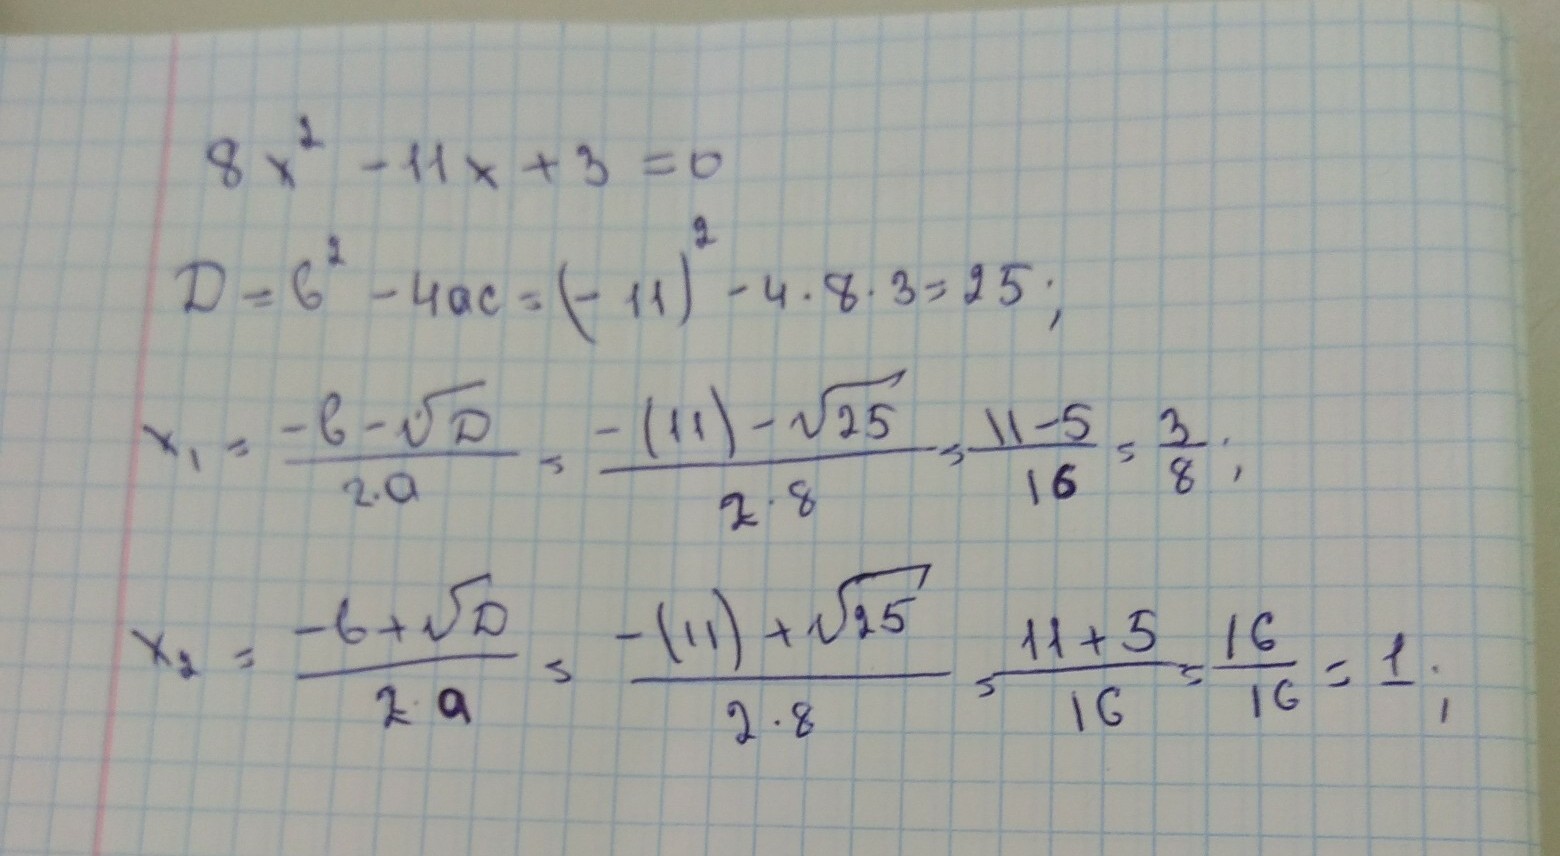 8x² - 11x + 3 = 0
D = b² - 4ac = (-11)² - 4·8·3 = 25;
x₁ = (-b - √D)/(2·a) = (-(11) - √25)/(2·8) = (11-5)/16 = 3/8;
x₂ = (-b + √D)/(2·a) = (-(11) + √25)/(2·8) = (11+5)/16 = 16/16 = 1;